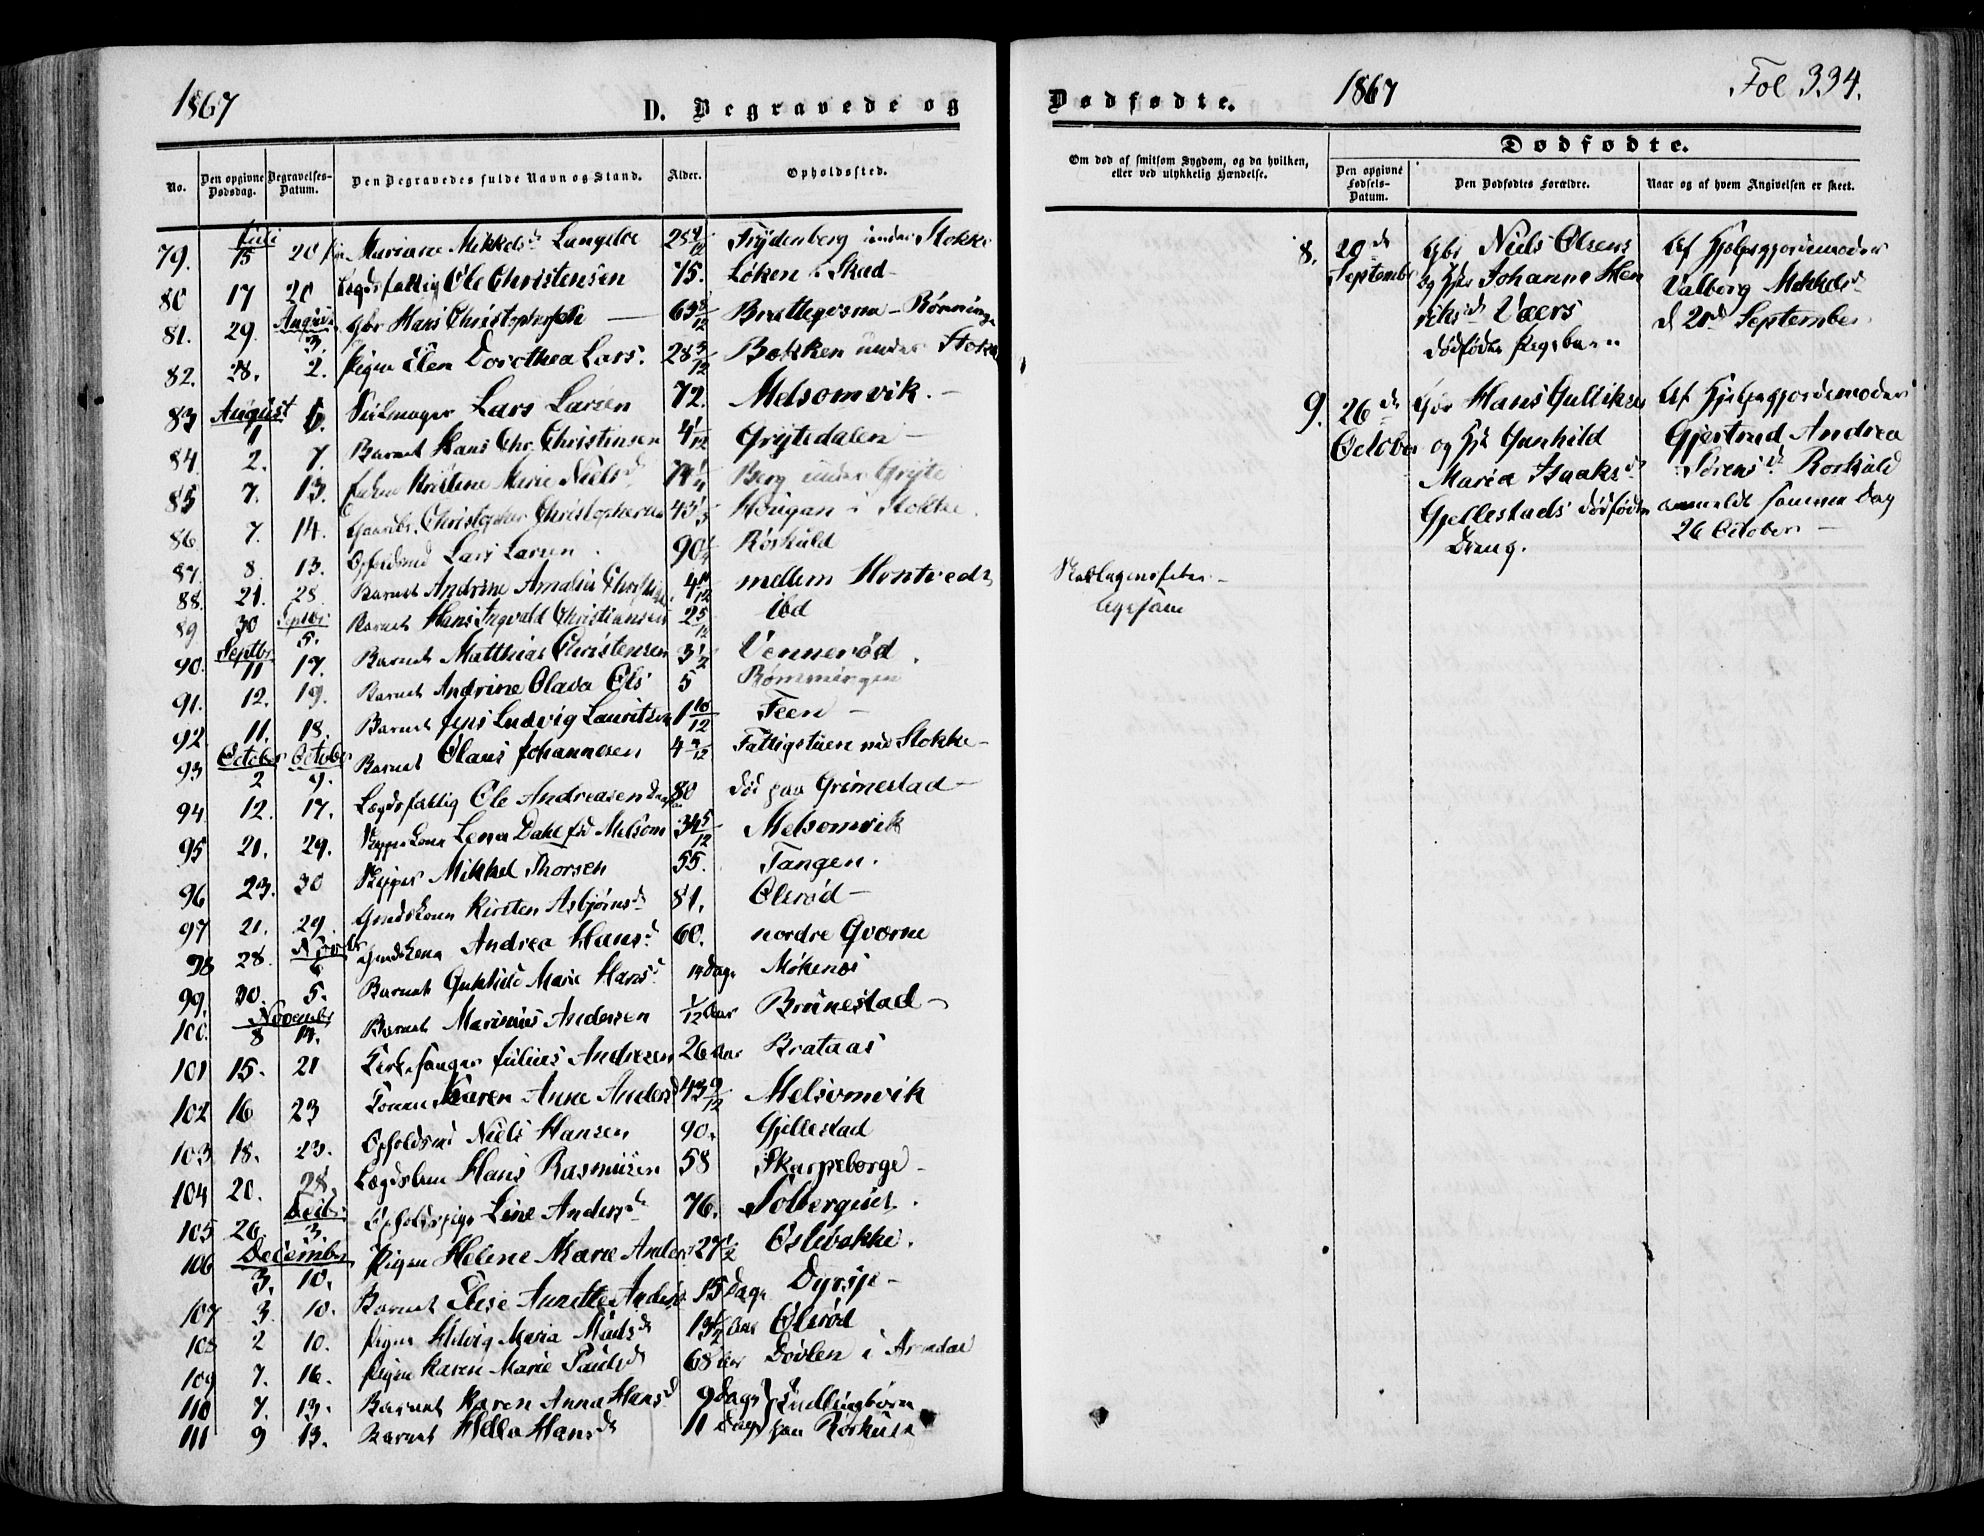 1867
D. Begravede og
No.
Den opgivne Dødsdag.
Begravelses-Datum.
Den Begravedes fulde Navn og Stand.
Alder.
Opholdssted.
79. Juli 15 20 Mariane Mikkelsd. Langelie 25 Frydenberg under Stokke
80 17 20 Lægdsfattig Ole Christensen 75. Løken i Skad
81. 29. August 3. Gbr Hans Christophersen 63 8/12 Brattegsrne Rømminge
82. 28. 2. Pigen Elen Dorothea Lars. 28 3/12 Bakken under Stokke
83 August 1 6. Seilmager Lars Larsen 72. Melsomvik.
84. 2. 7. Barnet Hans Chr. Christensen 4 1/12 Grytedalen
85 7. 13. Enken Kristine Marie Nielsd. 74 1/4 Berg under Gryte
86. 7. 14. Gaardbr. Christopher Christophersen 43 1/3 Hougan i Stokke
87. 8 13. Opholdsmd Lars Larsen 90 1/4 Røskuld
88. 21. 28. Barnet Andrine Amalie 4 11/12 mellem Hontvedt
89 30 Septbr 5. Barnet Hans Ingvald Christiansen 2 5/12 ibd
90. Septbr. 11 17. Barnet Matthias Christensen 3 1/2 Vennerød
91. 12. 19. Barnet Andrine Olava Ols 5 Rømmingen
92 11. 18. Barnet Jens Ludvig Lauritsen 1 10/12 Feen
93 October 2 October 9. Barnet Olaus Johannesen 4 9/12 Fattigstuen ved Stokke
94. 12. 17. Lægdsfattig Ole Andreasen 80 død paa Grimestad
95 21. 29. Skipperkone Lena Dahl fød Melsom 34 5/12 Melsomvik
96 23. 30 Skipper Mikkel Thorsen 55. Tangen.
97 21. 29. Gmdskone Kirsten Asbjørnsd. 81. Olsrød
98 28. Novbr 6 Gmdskone Andrea Hansd. 60. nordre Qværne
99. 30. 5. Barnet Gunhild Marie Hansd. 14 Dage Møkenes
100. November 8 14. Barnet Marinius Andersen 1/12 Aar Brunestad
101 15. 21 Kirkesanger Julius Andresen 26 Aar Brataas
102 16 23 Karen Anne Andersd 43 9/12 Melsomvik
103 18. 23. Opholdsmd Niels Hansen 90. Gjellestad
104 20. 28. Lægdslem Hans Rasmussen 58 Skarpeborge
105 26 Decbr. 3. Opholdspige Line Andersd. 76. Solbergeiet.
106 December 3. 10. Pigen Helene Marie Anders 27 1/2 Oslebakke.
107 3. 10. Barnet Elise Anette Anders 15 Dage Dyrsje
108 2 10. Pigen Hedvig Maria Nielsd 13 1/2 Aar Olsrød
109 7. 16. Pigen Karen Marie Paulsd 68 Aar Dovlen i Arendal
110 7. 13. Barnet Karen Anna Hansd. 9 Dage Tvillingbørn
111 9 13. Barnet Hella Hansd 11 Dage paa Røskuld
Dødfødte.
1867
Fol 334.
Om død af smitsom Sygdom, og da hvilken, eller ved ulykkelig Hændelse.
Dødfødte.
Den opgivne Fødsels-Datum.
Den Dødfødtes Forældre.
Naar og af hvem Angivelsen er skeet.
8. 20de September
Gbr Niels Olsens
og Hst Johanne Hen
riksd. Væers
dødfødte Pigebarn
Af Hjelpegjordemoder
Valborg Mikkelsd.
d. 20d September
9. 26de October
Gbr Hans Gulliksen
og Hst Gunhild
Maria Isaaksd.
Gjellestads dødfødte
Dreng.
Af Hjelpegjordemoder
Gjertrud Andrea
Sørensd. Røskuld
anmeldt samme Dag
26 October
Skarlagensfeber
ligesom